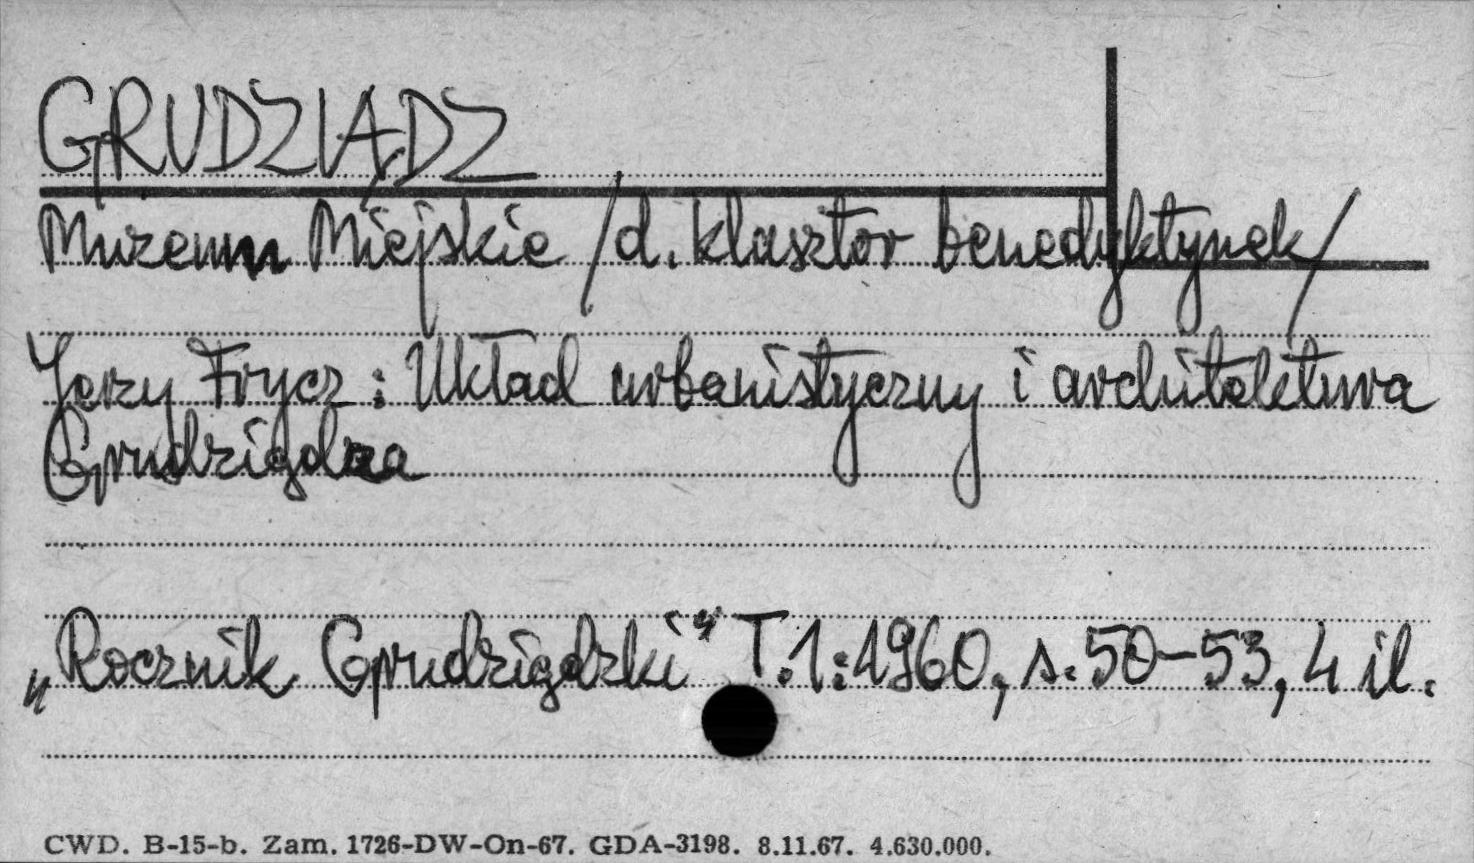 GRUDZIĄDZ
Muzeum Miejskie /d. klasztor benedyktynek/
Jerzy Frycz : Układ urbanistyczny i architektura
Grudziądza
„Rocznik Grudziądzki" T.1:1960, s. 50-53, 4 il.
CWD. B-15-b. Zam. 1726-DW-On-67. GDA-3198. 8.11.67. 4.630.000.